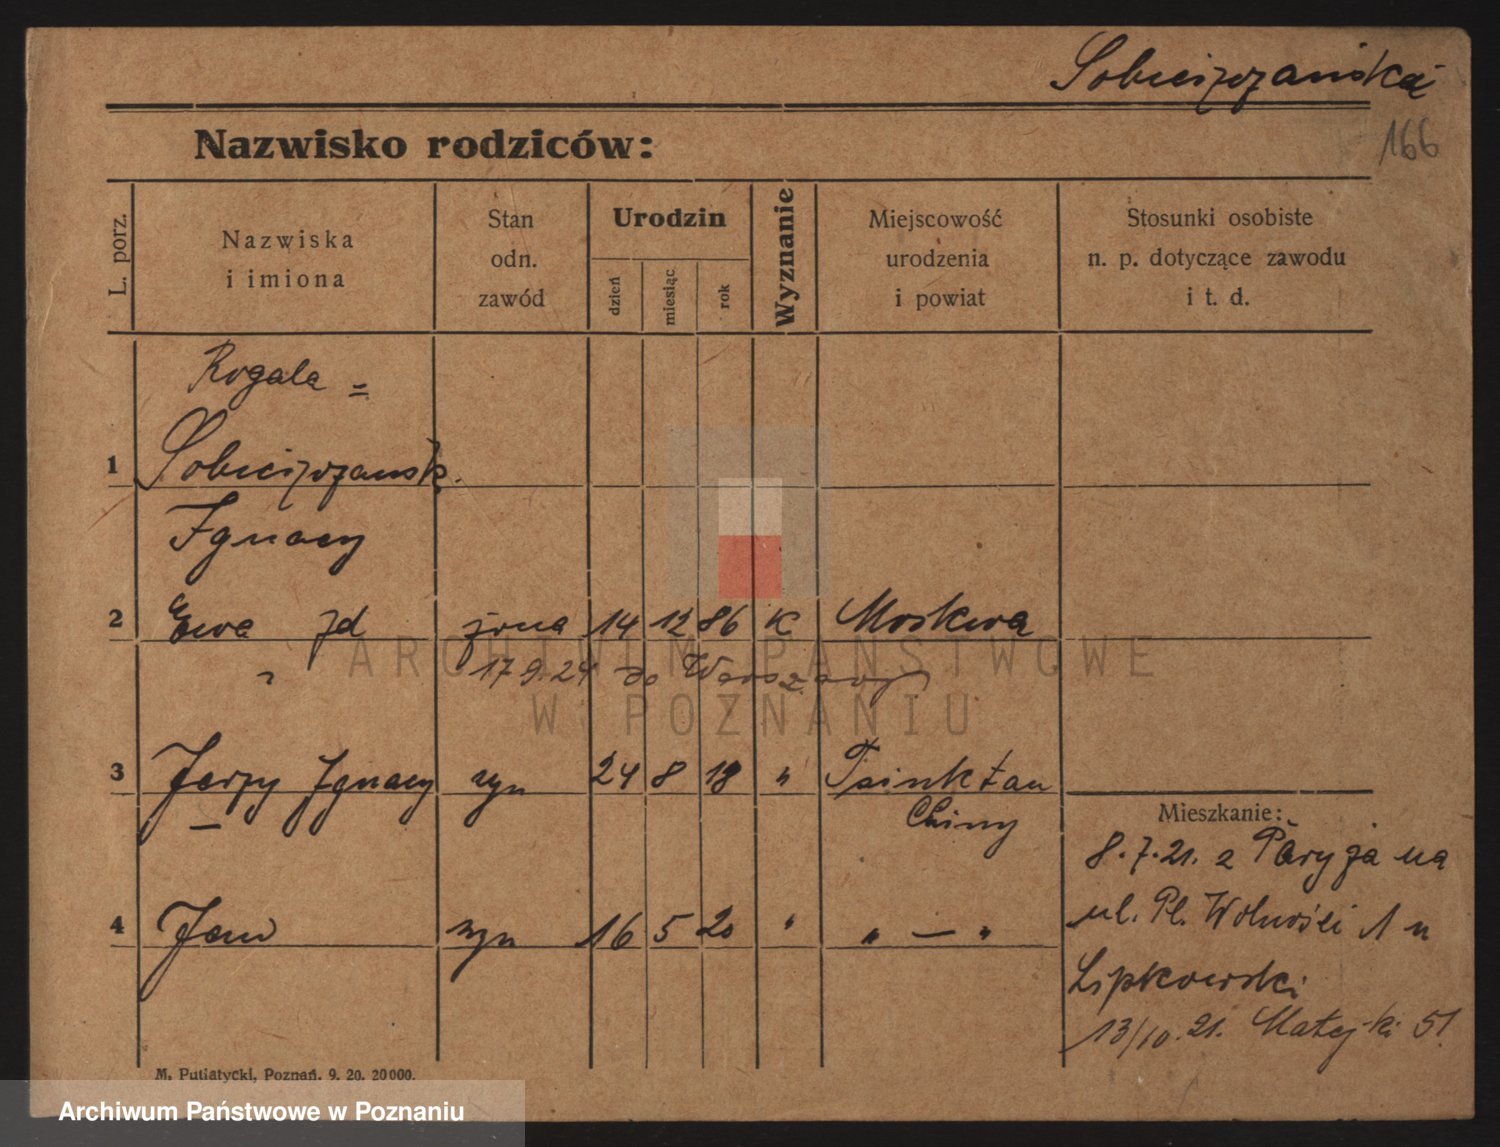 Sobieszczańska
166
Nazwisko rodziców:
L. porz.
Nazwiska
i imiona
Stan
odn.
zawód
Urodzin
dzień
miesiąc
rok
Wyznanie
Miejscowość
urodzenia
i powiat
Stosunki osobiste
n. p. dotyczące zawodu
i t. d.
Rogala =
1 Sobieszczańsk.
Ignacy
2 Ewa żona 14 12 86 K Moskwa
17 9. 24 do Warszawy
3 Jerzy Ignacy syn 24 8 18 " Tsinktau
Chiny
4 Jan syn 16 5 20 " " — "
Mieszkanie:
8.7.21. z Paryża na
ul. Pl. Wolności 1 u
Lipkowski
13/10.21. Matejki 51
M. Putiatycki, Poznań. 9. 20. 20000.
ARCHIWUM PAŃSTWOWE
W POZNANIU
Archiwum Państwowe w Poznaniu